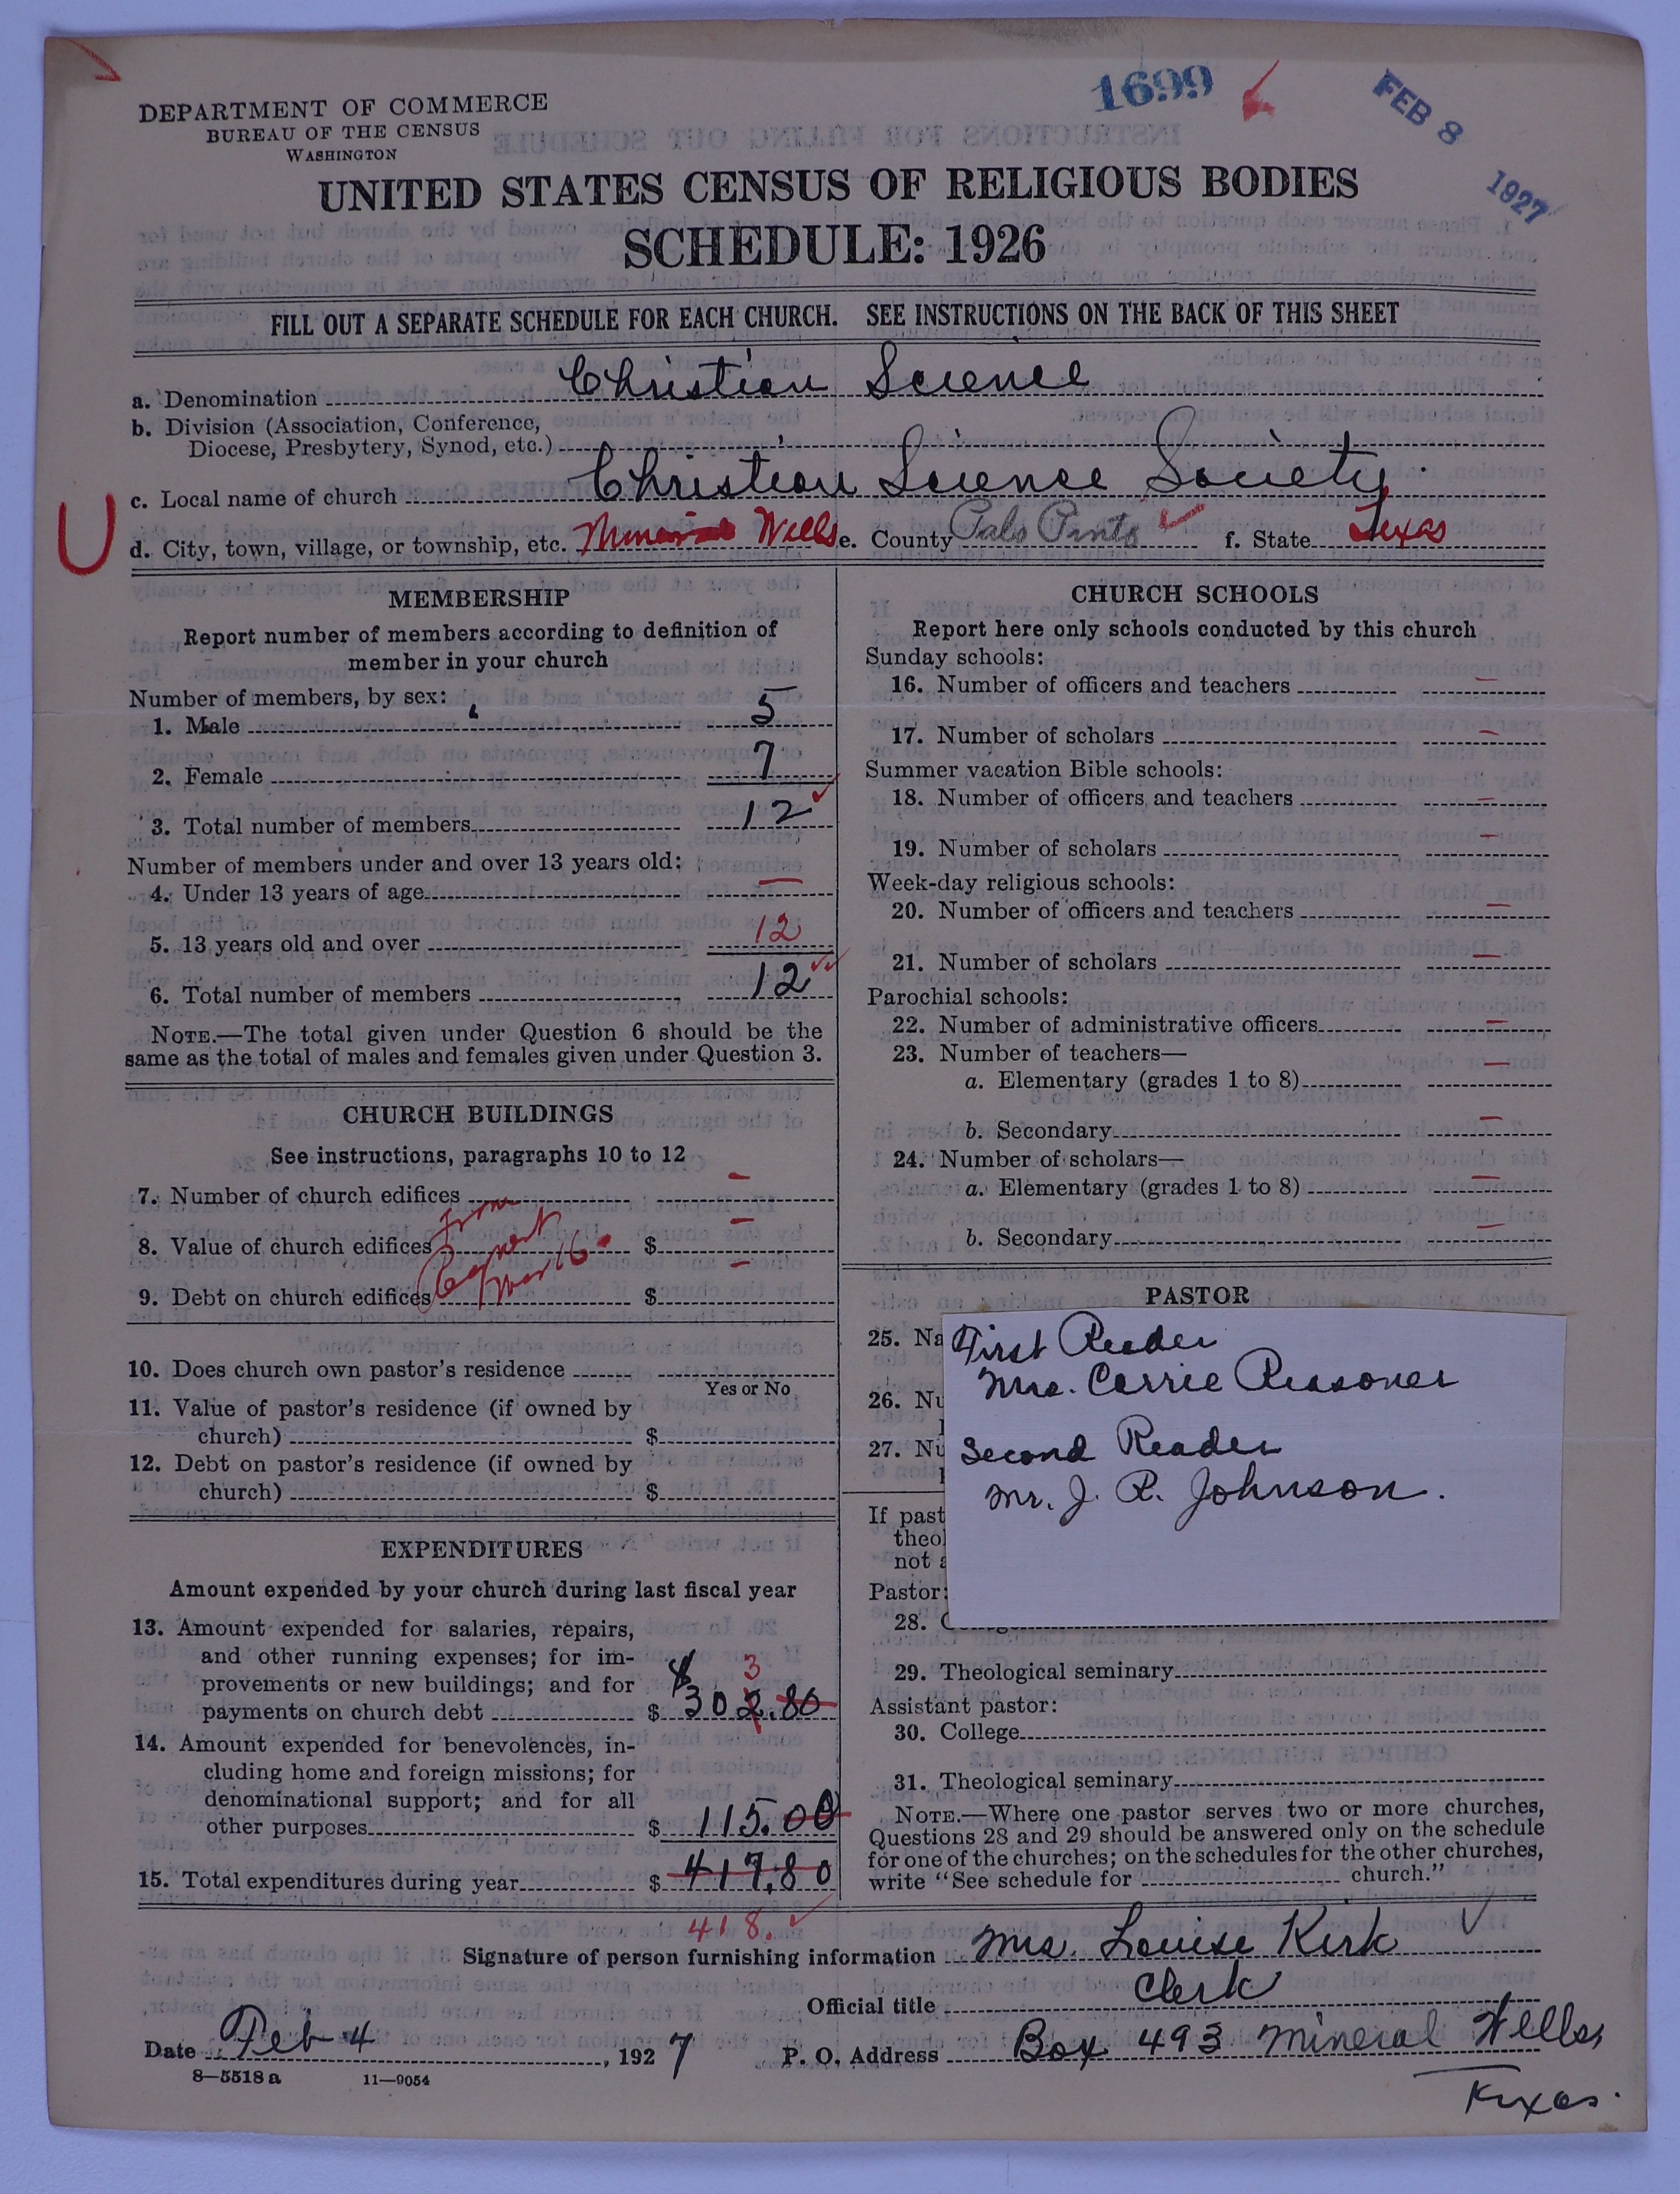 1699
FEB 8 1927
DEPARTMENT OF COMMERCE
BUREAU OF THE CENSUS
WASHINGTON
UNITED STATES CENSUS OF RELIGIOUS BODIES
SCHEDULE: 1926
FILL OUT A SEPARATE SCHEDULE FOR EACH CHURCH. SEE INSTRUCTIONS ON THE BACK OF THIS SHEET
a. Denomination Christian Science
b. Division (Association, Conference,
Diocese, Presbytery, Synod, etc.)
c. Local name of church Christian Science Society.
d. City, town, village, or township, etc. Mineral Wells e. County Palo Pinto f. State Texas
MEMBERSHIP
Report number of members according to definition of
member in your church
Number of members, by sex:
1. Male 5
2. Female 7
3. Total number of members 12
Number of members under and over 13 years old:
4. Under 13 years of age —
5. 13 years old and over 12
6. Total number of members 12
NOTE.—The total given under Question 6 should be the
same as the total of males and females given under Question 3.
CHURCH BUILDINGS
See instructions, paragraphs 10 to 12
7. Number of church edifices —
8. Value of church edifices $ —
9. Debt on church edifices $ —
from
10. Does church own pastor's residence
Yes or No
11. Value of pastor's residence (if owned by
church) $
12. Debt on pastor's residence (if owned by
church) $
EXPENDITURES
Amount expended by your church during last fiscal year
13. Amount expended for salaries, repairs,
and other running expenses; for im-
provements or new buildings; and for
payments on church debt $ $302.80
3
14. Amount expended for benevolences, in-
cluding home and foreign missions; for
denominational support; and for all
other purposes $ 115.00
15. Total expenditures during year $ 417.80
418.
CHURCH SCHOOLS
Report here only schools conducted by this church
Sunday schools:
16. Number of officers and teachers —
17. Number of scholars —
Summer vacation Bible schools:
18. Number of officers and teachers —
19. Number of scholars —
Week-day religious schools:
20. Number of officers and teachers —
21. Number of scholars —
Parochial schools:
22. Number of administrative officers —
23. Number of teachers—
a. Elementary (grades 1 to 8) —
b. Secondary —
24. Number of scholars—
a. Elementary (grades 1 to 8) —
b. Secondary —
PASTOR
25. Na
26. Nu
27. Nu
First Reader
Mrs. Carrie Reasoner
Second Reader
Mr. J. R. Johnson.
If past
theol
not a
Pastor:
28. C
29. Theological seminary
Assistant pastor:
30. College
31. Theological seminary
NOTE.—Where one pastor serves two or more churches,
Questions 28 and 29 should be answered only on the schedule
for one of the churches; on the schedules for the other churches,
write "See schedule for church."
Signature of person furnishing information Mrs. Louise Kirk
Official title Clerk
Date Feb 4, 1927 P. O. Address Box 493 Mineral Wells,
Texas.
8—5518 a 11—9054